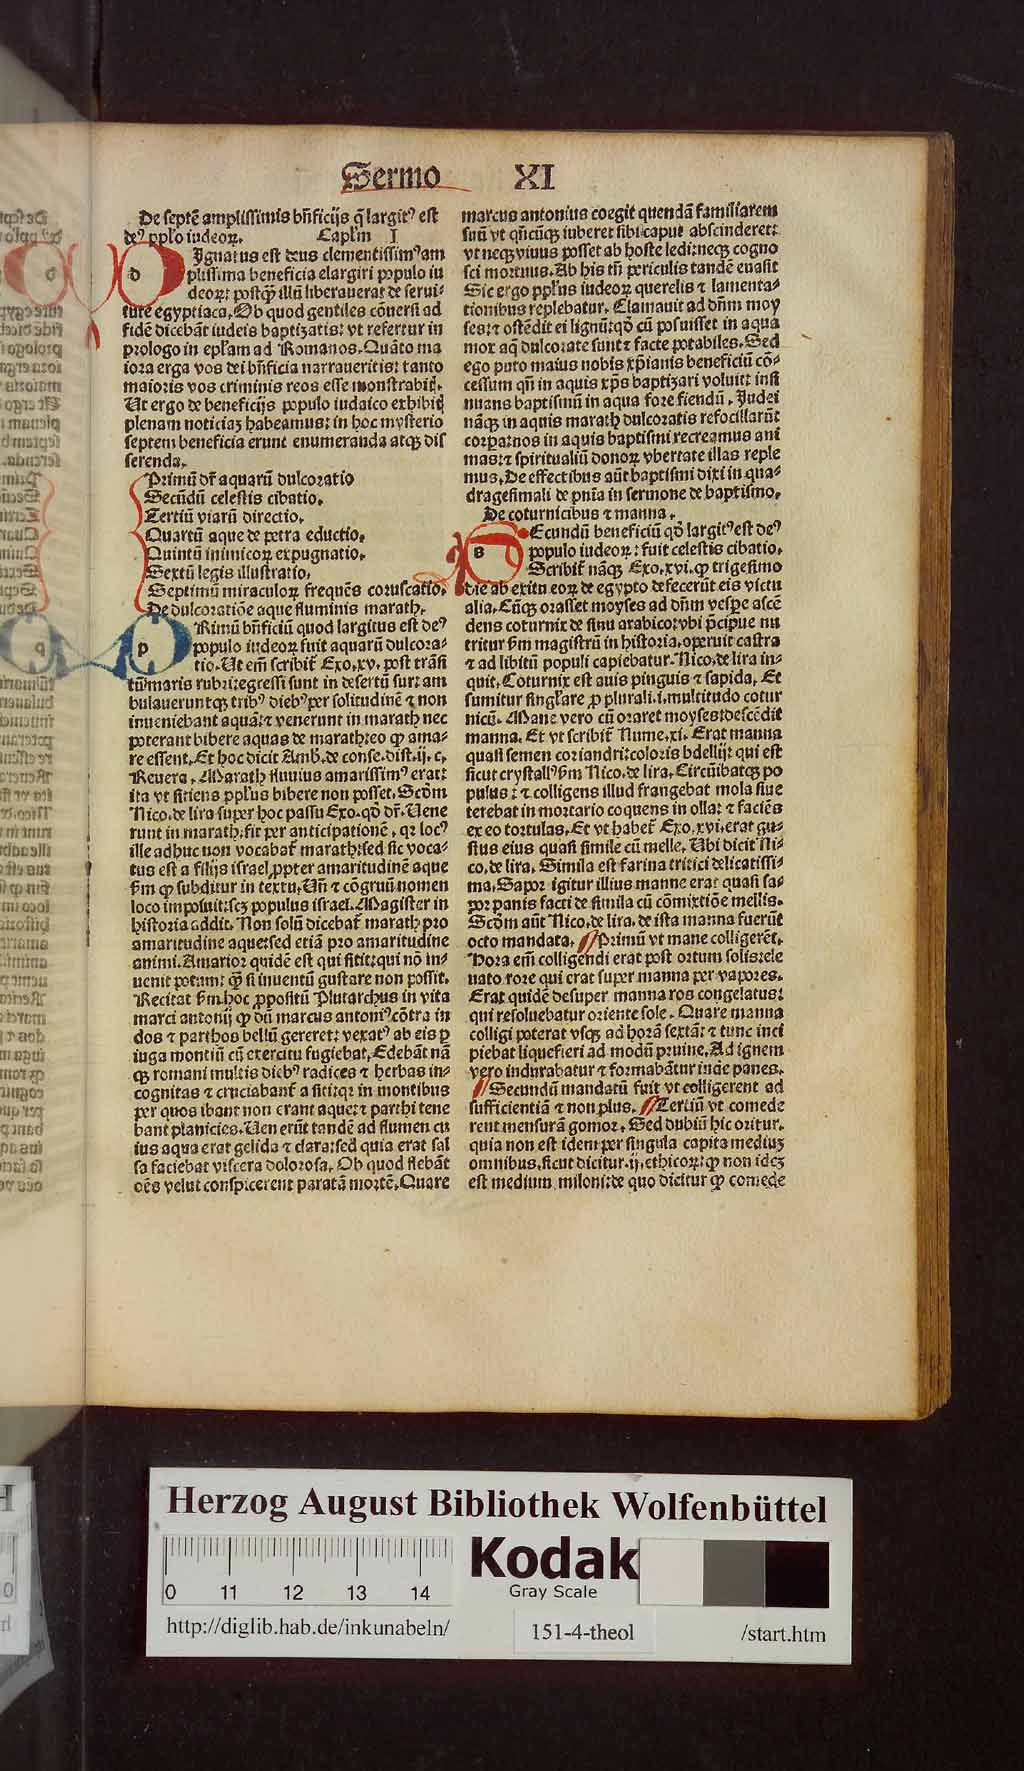 Sermo XI
De septē amplissimis bn̄ficijs q̄ largitꝰ est
deꝰ ppl'o iudeoꝝ. Capl'm I
DIgnatus est deus clementissimꝰ am
plissima beneficia elargiri populo iu
deoꝝ: postq̄ȝ illū liberauerat de serui-
tute egyptiaca. Ob quod gentiles cōuersi ad
fidē dicebāt iudeis baptizatis: vt refertur in
prologo in epl'am ad Romanos. Quāto ma
iora erga vos dei bn̄ficia narraueritis: tanto
maioris vos criminis reos esse monstrabit̄.
Ut ergo de beneficijs populo iudaico exhibit̄
plenam noticiaȝ habeamus: in hoc mysterio
septem beneficia erunt enumeranda atqȝ dis
serenda.
Primū dr̄ aquarū dulcoratio
Secūdū celestis cibatio.
Tertiū viarū directio.
Quartū aque de petra eductio.
Quintū inimicoꝝ expugnatio.
Sextū legis illustratio.
Septimū miraculoꝝ frequēs coruscatio.
De dulcoratiōe aque fluminis marath.
PRimū bn̄ficiū quod largitus est deꝰ
populo iudeoꝝ fuit aquarū dulcora-
tio. Ut em̄ scribit̄ Exo. xv. post trāsi
tū maris rubri: egressi sunt in desertū sur: am
bulaueruntqȝ tribꝰ diebꝰ per solitudinē ⁊ non
inueniebant aquā: ⁊ venerunt in marath nec
poterant bibere aquas de marath: eo ꝙ ama-
re essent. Et hoc dicit Amb. de conse. dist. ij. c.
Reuera. Marath fluuius amarissimꝰ erat:
ita vt sitiens ppl'us bibere non posset. Scd̄m
Nico. de lira super hoc passu Exo. qd̄ dr̄. Uene
runt in marath. fit per anticipationē, qꝛ locꝰ
ille adhuc non vocabat̄ marath: sed sic voca-
tus est a filijs israel ꝓpter amaritudinē aque
scd̄m ꝙ subditur in textu. Un̄ ⁊ cōgruū nomen
loco imposuit: scȝ populus israel. Magister in
historia addit. Non solū dicebat̄ marath pro
amaritudine aque: sed etiā pro amaritudine
animi. Amarior quidē est qui sitit: qui nō in-
uenit potum: q̄ȝ si inuentū gustare non possit.
Recitat scd̄m hoc ꝓpositū Plutarchus in vita
marci antonij ꝙ dū marcus antoniꝰ cōtra in
dos ⁊ parthos bellū gereret: vexatꝰ ab eis ꝑ
iuga montiū cū exercitu fugiebat. Edebāt nā
qȝ romani multis diebꝰ radices ⁊ herbas in-
cognitas ⁊ cruciabant̄ a siti: qꝛ in montibus
per quos ibant non erant aque: ⁊ parthi tene
bant planicies. Uenerūt tandē ad flumen cu
ius aqua erat gelida ⁊ clara: sed quia erat sal
sa faciebat viscera dolorosa. Ob quod flebāt
oēs velut conspicerent paratā mortē. Quare
marcus antonius coegit quendā familiarem
suū vt qn̄cūqȝ iuberet sibi caput abscinderet:
vt neqȝ viuus posset ab hoste ledi: neqȝ cogno
sci mortuus. Ab his tn̄ periculis tandē euasit
Sic ergo ppl'us iudeoꝝ querelis ⁊ lamenta-
tionibus replebatur. Clamauit ad dn̄m moy
ses: ⁊ ostēdit ei lignū: qd̄ cū posuisset in aqua
mox aq̄ dulcorate sunt ⁊ facte potabiles. Sed
ego puto maius nobis xp̄ianis beneficiū cō-
cessum qn̄ in aquis xp̄s baptizari voluit: insi
nuans baptismū in aqua fore fiendū. Iudei
nāqȝ in aquis marath dulcoratis refocillarūt
corpa: nos in aquis baptismi recreamus ani
mas: ⁊ spiritualiū donoꝝ vbertate illas reple
mus. De effectibus aūt baptismi dixi in qua-
dragesimali de pn̄ia in sermone de baptismo.
De coturnicibus ⁊ manna.
SEcundū beneficiū qd̄ largitꝰ est deꝰ
populo iudeoꝝ: fuit celestis cibatio.
Scribit̄ nāqȝ Exo. xvi. ꝙ trigesimo
die ab exitu eoꝝ de egypto defecerūt eis victu
alia. Cūqȝ orasset moyses ad dn̄m vespe ascē
dens coturnix de sinu arabico: vbi p̄cipue nu
tritur scd̄m magistrū in historia. operuit castra
⁊ ad libitū populi capiebatur. Nico. de lira in-
quit. Coturnix est auis pinguis ⁊ sapida. Et
sumitur singl'are ꝓ plurali. i. multitudo cotur
nicū. Mane vero cū oraret moyses: descēdit
manna. Et vt scribit̄ Nume. xi. Erat manna
quasi semen coriandri: coloris bdellij: qui est
sicut crystallꝰ scd̄m Nico. de lira. Circūibatqȝ po
pulus: ⁊ colligens illud frangebat mola siue
terebat in mortario coquens in olla: ⁊ faciēs
ex eo tortulas. Et vt habet̄ Exo. xvi. erat gu-
stus eius quasi simile cū melle. Ubi dicit Ni-
co. de lira. Simila est farina tritici delicatissi-
ma. Sapor igitur illius manne erat quasi sa-
por panis facti de simila cū cōmixtiōe mellis.
Scd̄m aūt Nico. de lira. de ista manna fuerūt
octo mandata. Primū vt mane colligerēt.
Hora em̄ colligendi erat post ortum solis: ele
uato rore qui erat super manna per vapores.
Erat quidē desuper manna ros congelatus:
qui resoluebatur oriente sole. Quare manna
colligi poterat vsqȝ ad horā sextā: ⁊ tunc inci
piebat liquefieri ad modū pruine. Ad ignem
vero indurabatur ⁊ formabātur inde panes.
Secundū mandatū fuit vt colligerent ad
sufficientiā ⁊ non plus. Tertiū vt comede
rent mensurā gomor. Sed dubiū hic oritur.
quia non est idem per singula capita mediuȝ
omnibus. sicut dicitur. ij. ethicoꝝ: ꝙ non ideȝ
est medium miloni: de quo dicitur ꝙ comede
Herzog August Bibliothek Wolfenbüttel
0 11 12 13 14
Kodak
Gray Scale
http://diglib.hab.de/inkunabeln/
151-4-theol
/start.htm